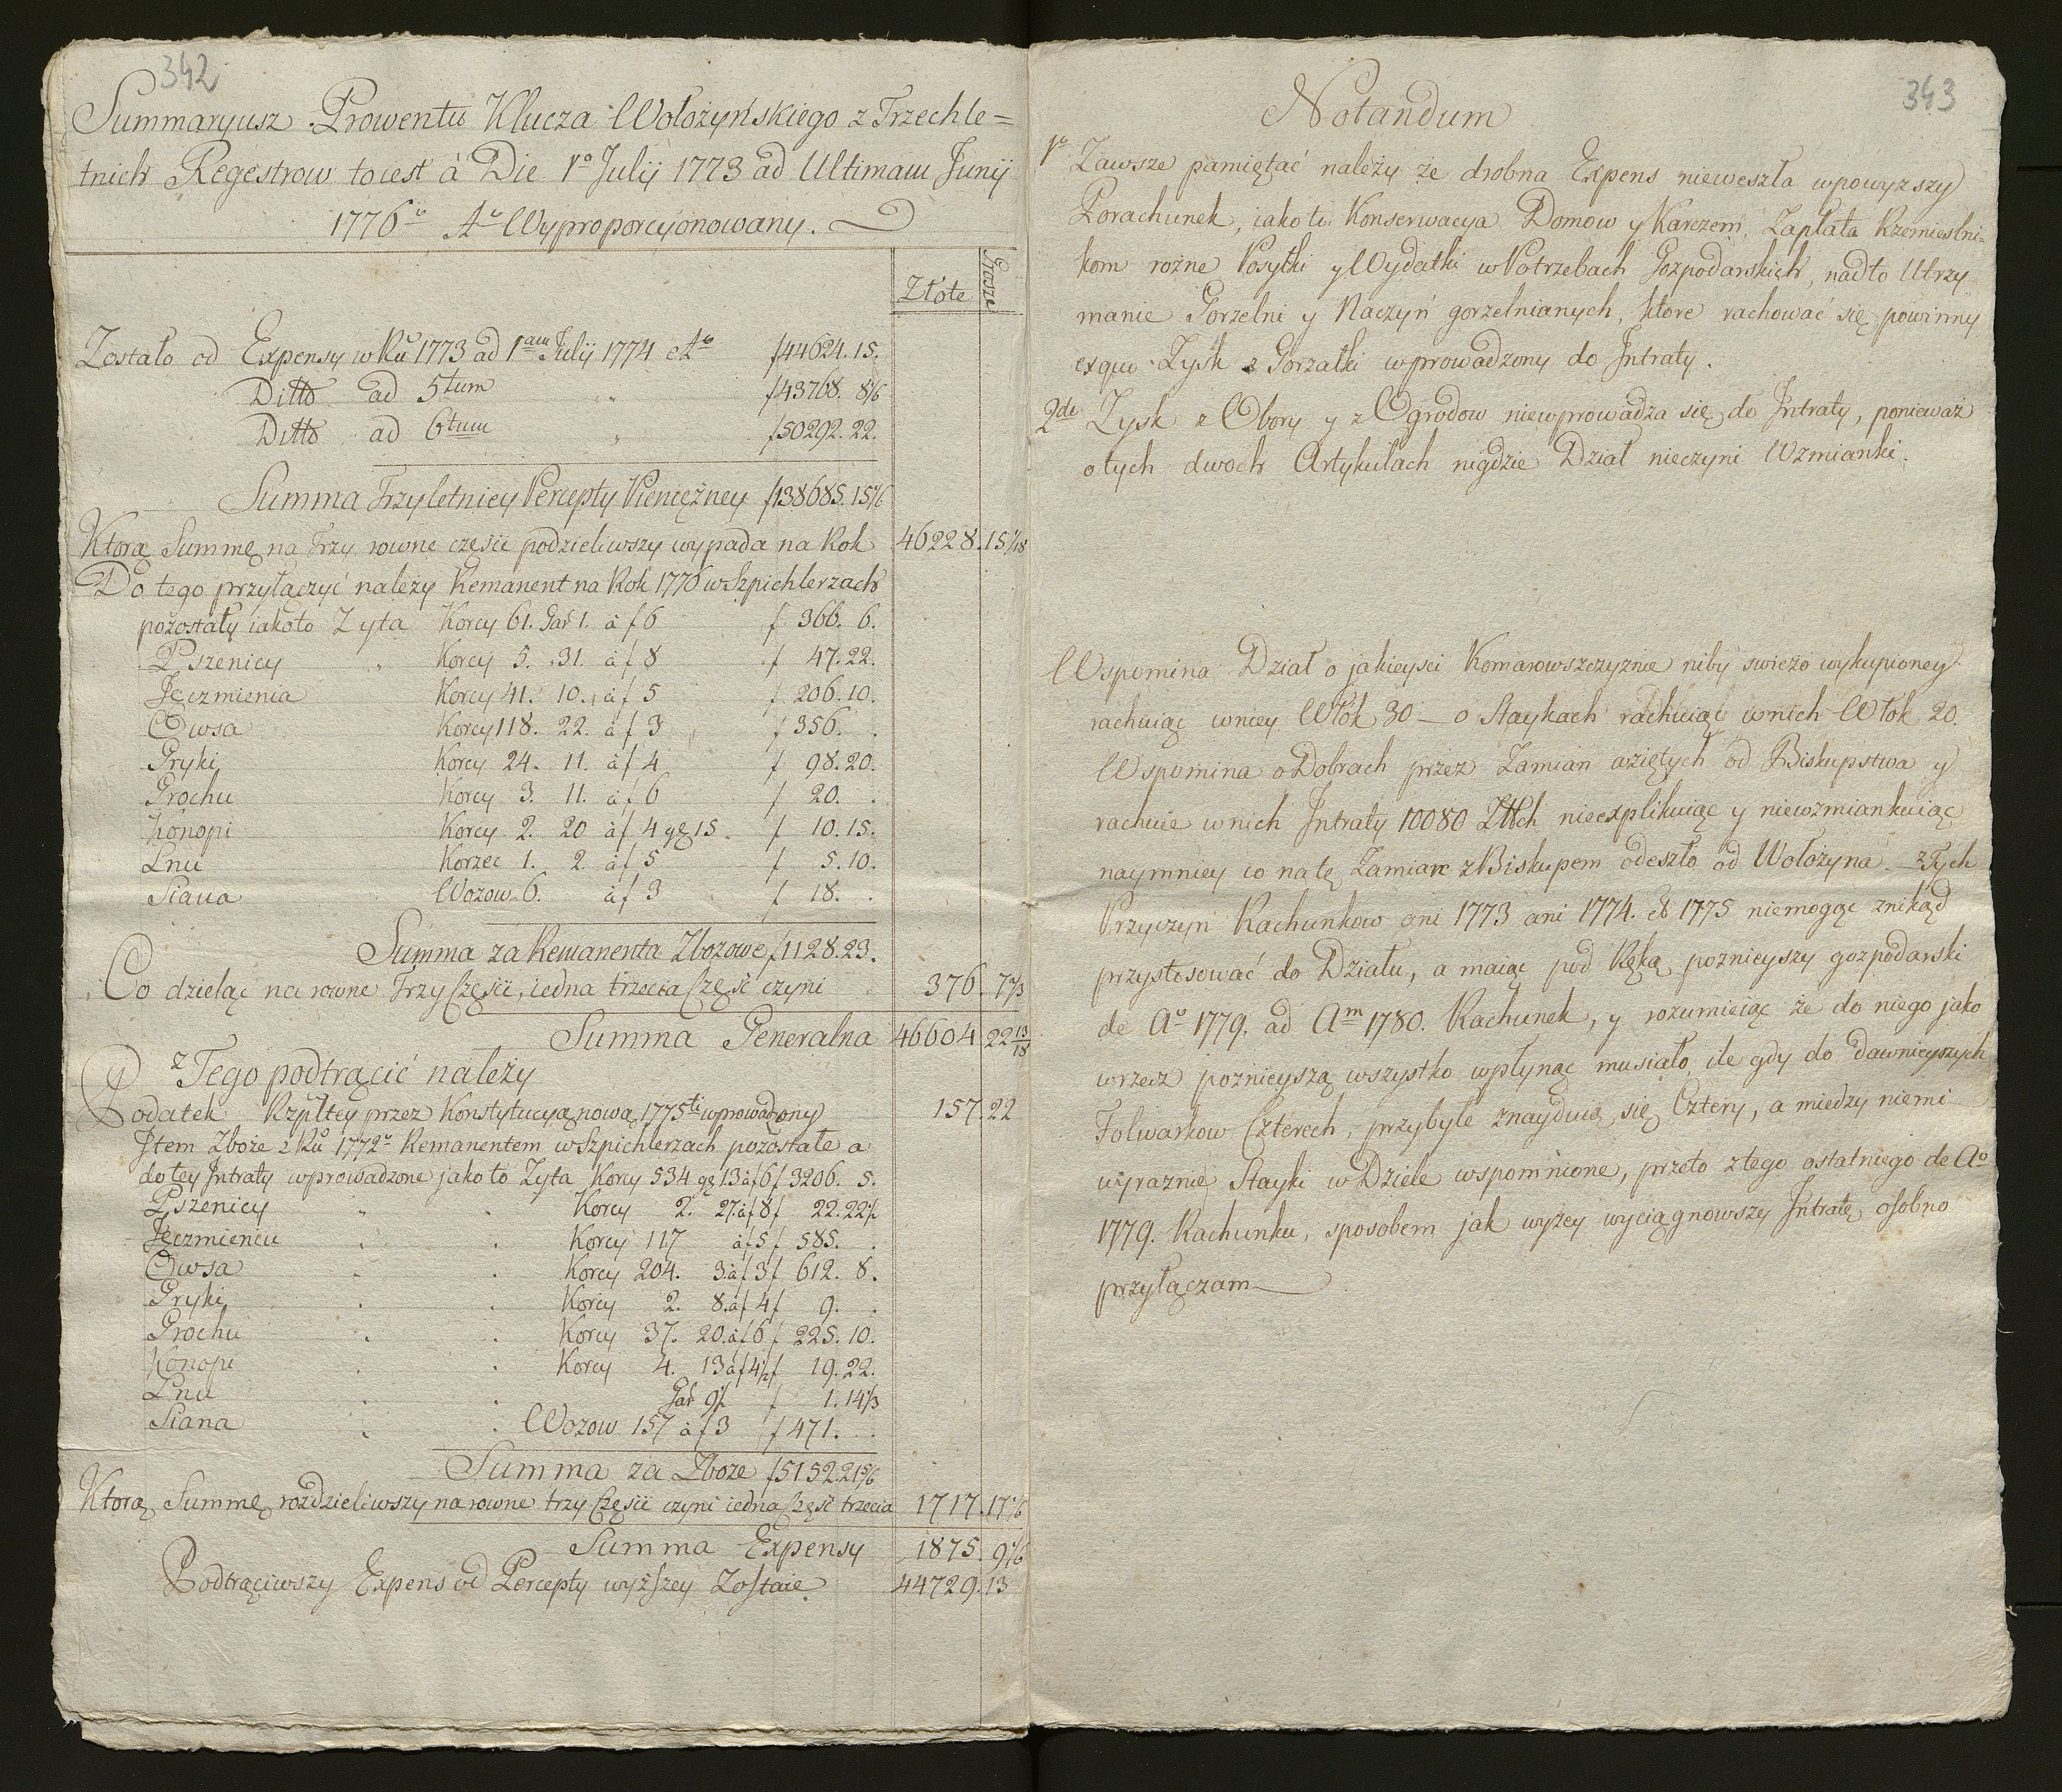 342
Summaryusz Prowentu Klucza Wołożyńskiego z Trzechle=
tnich Regestrow toiest à Die 1º Julij 1773 ad Ultimam Junij
1776º Aº Wyproporcyonowany.
Złote Grosze
Zostało od Expensy w Rŭ 1773 ad 1am Julij 1774 Aº f44624.15.
Ditto ad 5tum " f43768. 8 1/6
Ditto ad 6tum " f50292.22.
Summa Trzyletniey Percepty Pieniężney f138685.15 1/6
Ktorą Summę na Trzy rowne częsci podzieliwszy wypada na Rok 46228.15 1/18
Do tego przyłączyć należy Remanent na Rok 1776 w Szpichlerzach
pozostały iakoto Zyta Korcy 61. Gař 1. à f 6 f 366. 6.
Pszenicy " Korcy 5. 31. à f 8 f 47.22.
Jęczmienia Korcy 41. 10. à f 5 f 206.10.
Owsa Korcy 118. 22. à f 3 f 356. .
Gryki Korcy 24. 11. à f 4 f 98.20.
Grochu Korcy 3. 11. à f 6 f 20. .
Konopi Korcy 2. 20 à f 4 gę 15. f 10.15.
Lnu Korzec 1. 2. à f 5 f 5.10.
Siana Wozow 6. à f 3 f 18. .
Summa za Remanenta Zbozowe f1128.23.
Co dzieląc na rowne Trzy Częsci, iedna trzecia Częsć czyni 376. 7 2/3
Summa Generalna 46604 22 13/18
z Tego podtrącić należy
Podatek Rzpltey przez Konstytucyą nową 1775ti wprowadzony 157.22
Jtem Zboże z Rŭ 1772º Remanentem w Szpichlerzach pozostałe a
do tey Jntraty wprowadzone jako to Zyta Korcy 534 gę 13 à f 6 f 3206. 5.
Pszenicy " . Korcy 2. 27. à f 8 f 22.22 1/2
Jęczmieniu . . Korcy 117 à f 5 f 585. .
Owsa . . Korcy 204. 3. à f 3 f 612. 8.
Gryki . . Korcy 2. 8. à f 4 f 9. .
Grochu . . Korcy 37. 20. à f 6 f 225.10.
Konopi . . Korcy 4. 13 à f 4 1/2 f 19.22.
Lnu . . Gař 9 1/2 f 1.14 1/3
Siana . . Wozow 157 à f 3 f 471. .
Summa za Zboze f5152.21 5/6
Ktorą Summę rozdzieliwszy na rowne trzy Częsci czyni iedna Częsć trzecia 1717.17 1/6
Summa Expensy 1875. 9 1/6
Podtrąciwszy Expens od Percepty wyższey Zostaie. 44729.13
343
Notandum
1º Zawsze pamiętać należy że drobna Expens nieweszła wpowyzszy
Porachunek, iako to Konserwacya Domow y Karczem, Zapłata Rzemieslni=
kom rożne Posyłki y Wydatki w Potrzebach Gozpodarskich, nadto Utrzy
manie Gorzelni y Naczyń gorzelnianych, ktore rachować się powinny
exquo Zysk z Gorzałki wprowadzony do Jntraty.
2do Zysk z Obory y z Ogrodow niewprowadza się do Jntraty, ponieważ
otych dwoch Artykułach nigdzie Dział nieczyni Wzmianki.
Wspomina Dział o jakieysci Komarowszczyznie niby swieżo wykupioney
rachuiąc wniey Włok 30 — o Staykach rachuiąc wnich Włok 20.
Wspomina o Dobrach przez Zamian wziętych od Biskupstwa y
rachuie wnich Jntraty 10080 Złłch nieexplikuiąc y niewzmiankuiąc
naymniey co natę Zamian z Biskupem odeszło od Wołożyna. — z Tych
Przyczyn Rachunkow ani 1773 ani 1774. et 1775 niemogąc znikąd
przystosować do Działu, a maiąc pod Ręką poznieyszy gozpodarski
de Aº 1779. ad Am 1780. Rachunek, y rozumieiąc że do niego jako
wrzecz poznieyszą wszystko wpłynąc musiało, ile gdy do dawnieyszych
Folwarkow Czterech, przybyłe znayduią się Cztery, a miedzy niemi
wyraznie Stayki w Dziele wspomnione, przeto ztego ostatniego de Aº
1779. Rachunku, sposobem jak wyżey wyciągnowszy Jntratę osobno
przyłączam